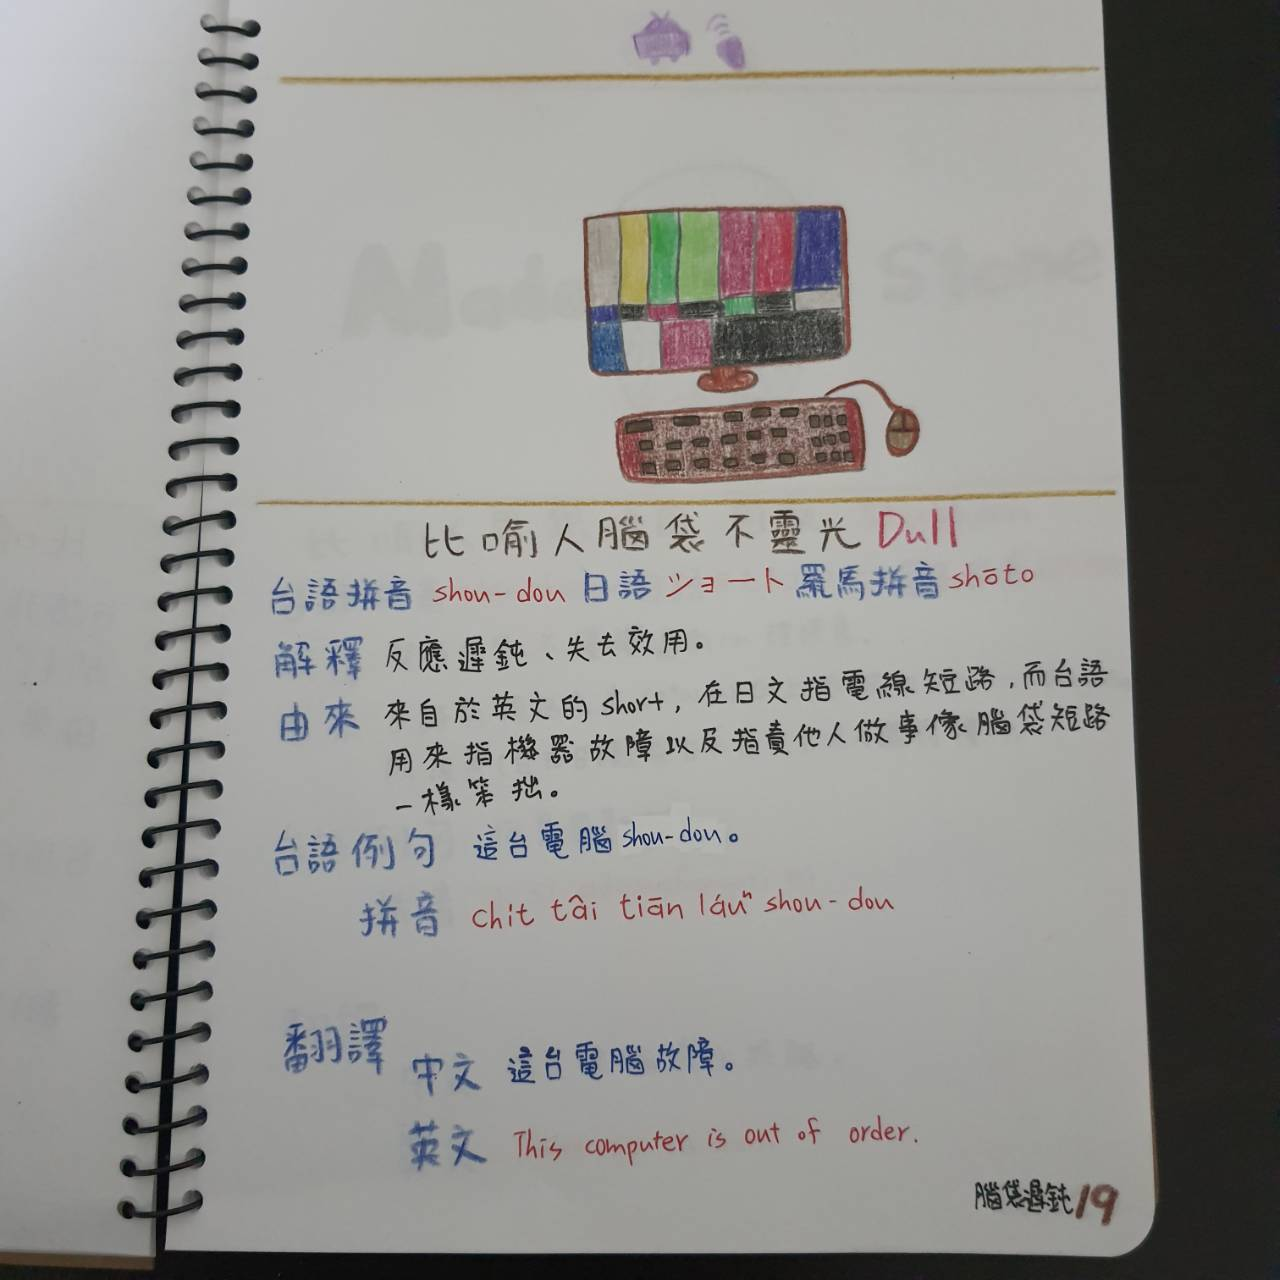 比喻人腦袋不靈光 Dull
台語拼音 shou-dou 日語 ショート 羅馬拼音 shōto
解釋 反應遲鈍、失去效用。
由來 來自於英文的short, 在日文指電線短路,而台語
用來指機器故障以及指責他人做事像腦袋短路
一樣笨拙。
台語例句 這台電腦shou-dou。
拼音 chit tâi tiān láuⁿ shou-dou
翻譯
中文 這台電腦故障。
英文 This computer is out of order.
腦袋遲鈍 19